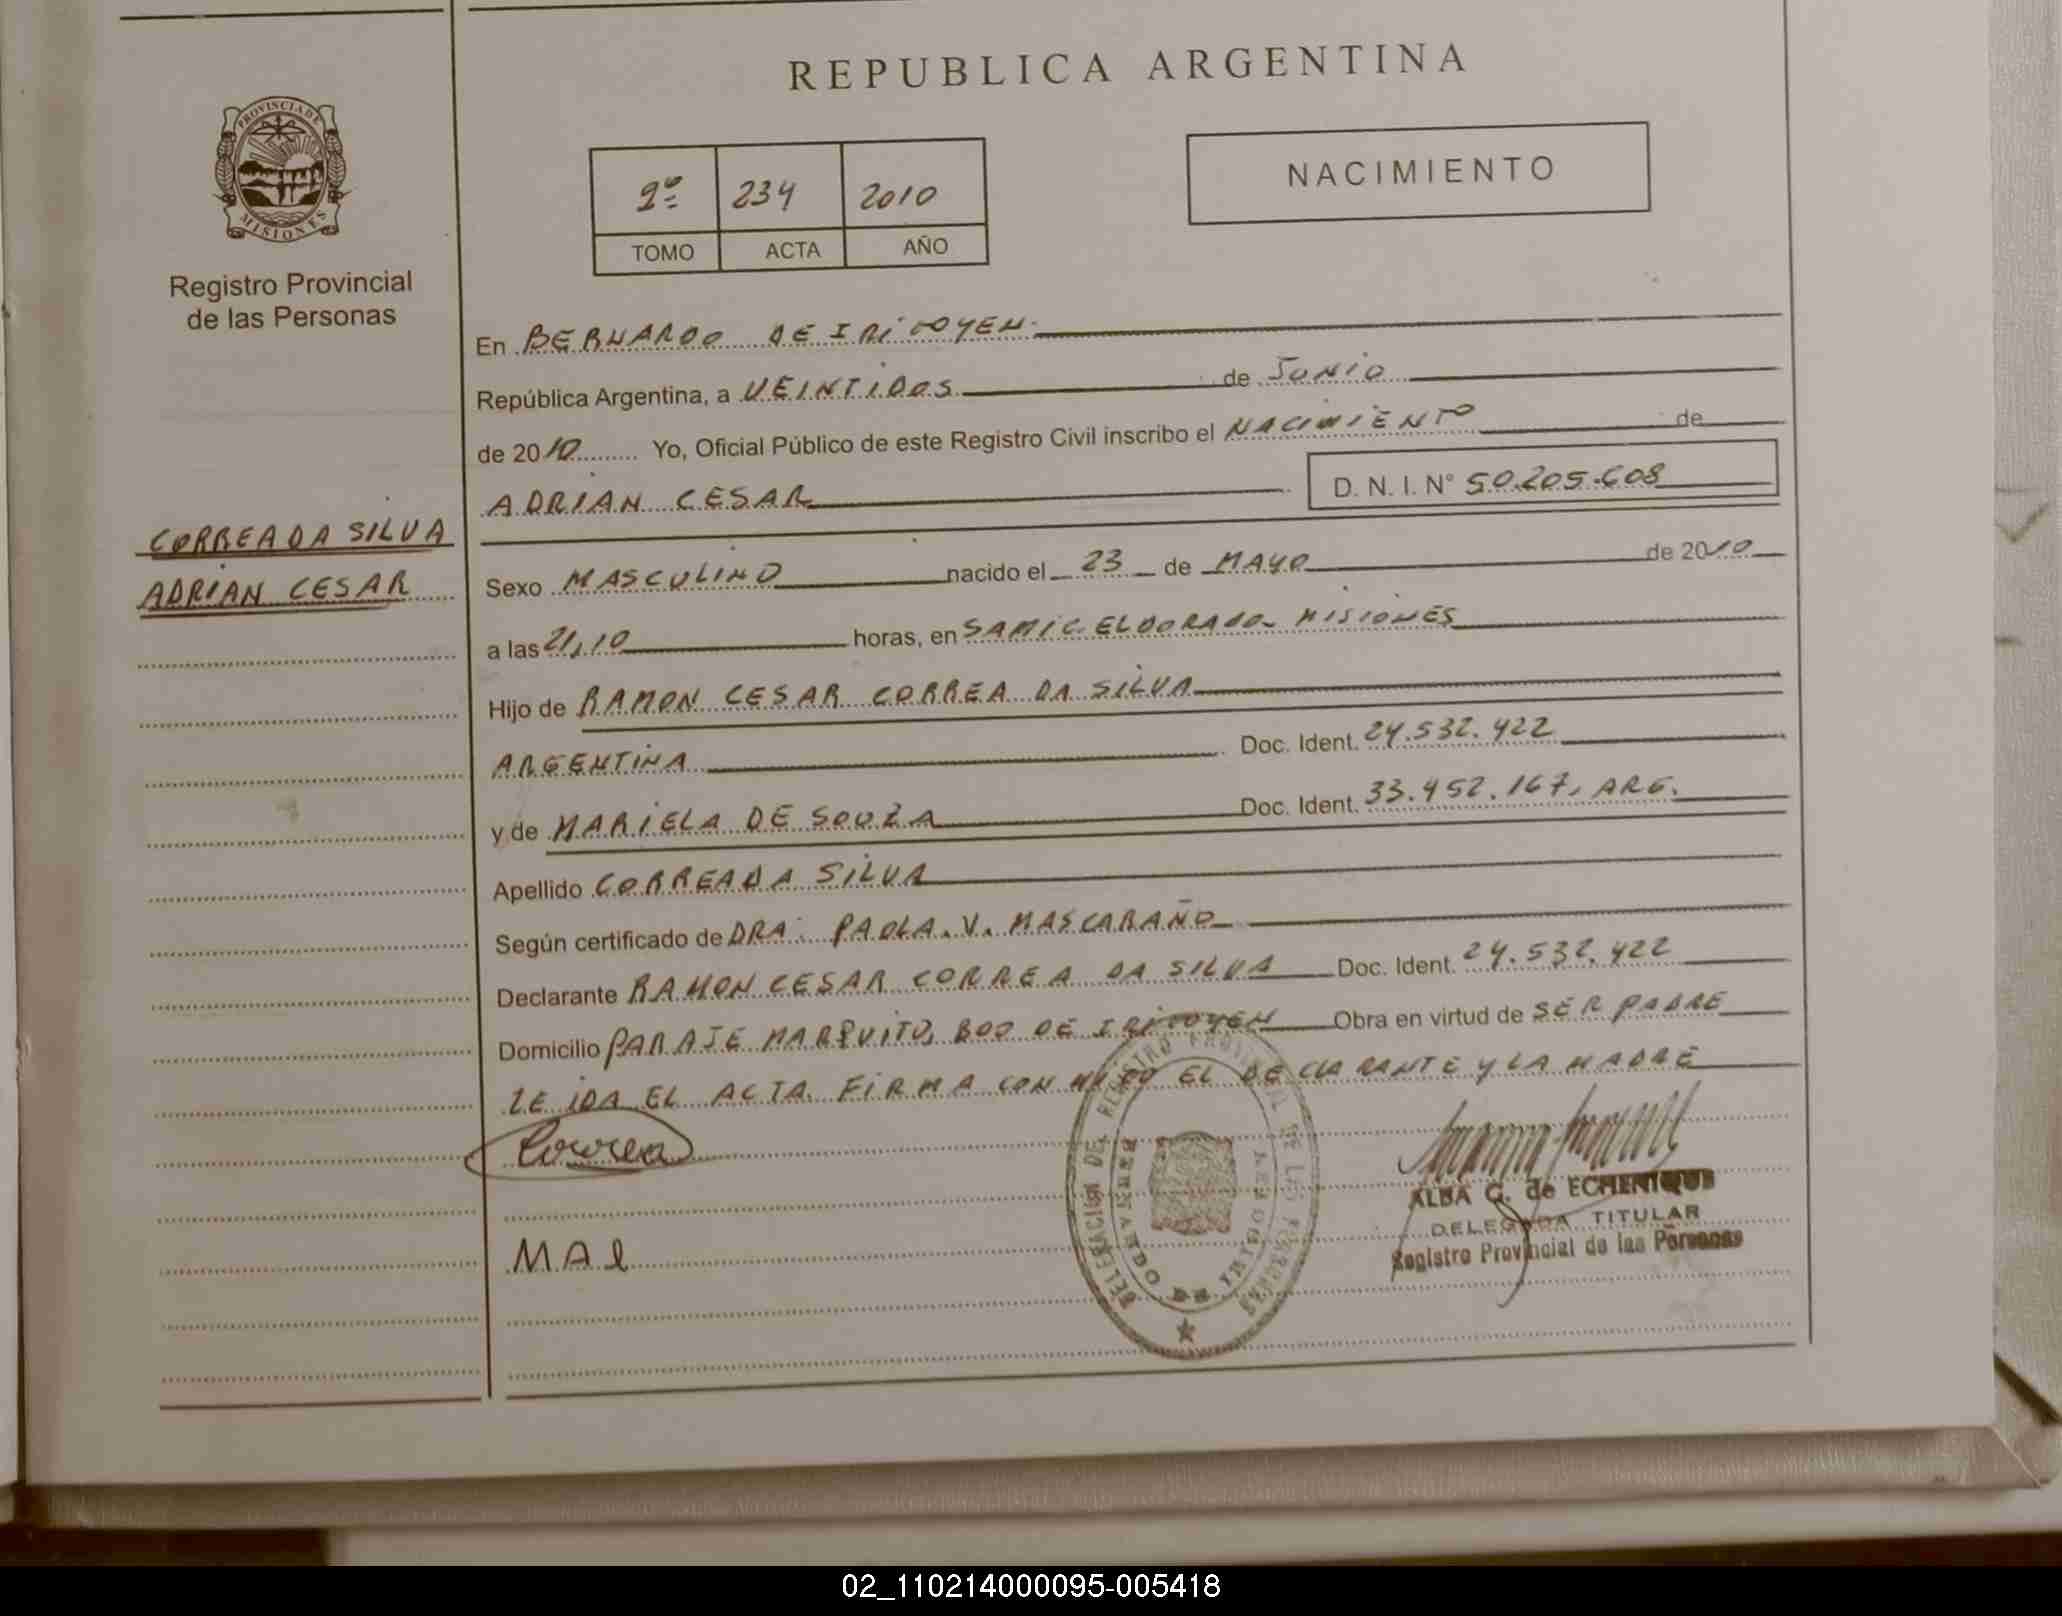 REPUBLICA ARGENTINA
PROVINCIA DE
MISIONES
Registro Provincial
de las Personas
2º 234 2010
TOMO ACTA AÑO
NACIMIENTO
En BERNARDO DE IRIGOYEN
República Argentina, a VEINTIDOS de JUNIO
de 2010 Yo, Oficial Público de este Registro Civil inscribo el NACIMIENTO de
ADRIAN CESAR D. N. I. N° 50.205.608
CORREA DA SILVA
ADRIAN CESAR
Sexo MASCULINO nacido el 23 de MAYO de 2010
a las 21,10 horas, en SAMIC. ELDORADO. MISIONES
Hijo de RAMON CESAR CORREA DA SILVA
ARGENTINA Doc. Ident. 24.532.422
y de MARIELA DE SOUZA Doc. Ident. 33.452.167, ARG.
Apellido CORREA DA SILVA
Según certificado de DRA: PAOLA. V. MASCARAÑO
Declarante RAMON CESAR CORREA DA SILVA Doc. Ident. 24.532.422
Domicilio PARAJE MARQUITO, BDO DE IRIGOYEN Obra en virtud de SER PADRE
LEIDA EL ACTA. FIRMA CON MIGO EL DECLARANTE Y LA MADRE
Correa
ALBA G. de ECHENIQUE
DELEGADA TITULAR
Registro Provincial de las Personas
MAL
DELEGACION DEL REGISTRO PROVINCIAL DE LAS PERSONAS
BERNARDO DE IRIGOYEN
02_110214000095-005418